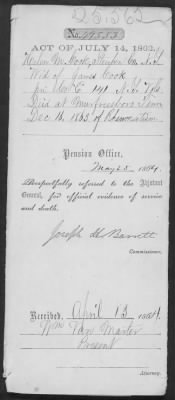 25,563
No. 49553
ACT OF JULY 14, 1862.
M. Cook, Steuben Co. N.Y.
Wid of James Cook
Co. E 141 N.Y. Vols
Died at Murfreesboro Tenn
Dec 16, 1863 of
Pension Office,
May 25 1864.
Respectfully referred to the Adjutant
General, for official evidence of service
and death.
Joseph H Barrett
Commissioner.
Received, April 13 1864
Wm Van Marter
Present
Attorney.